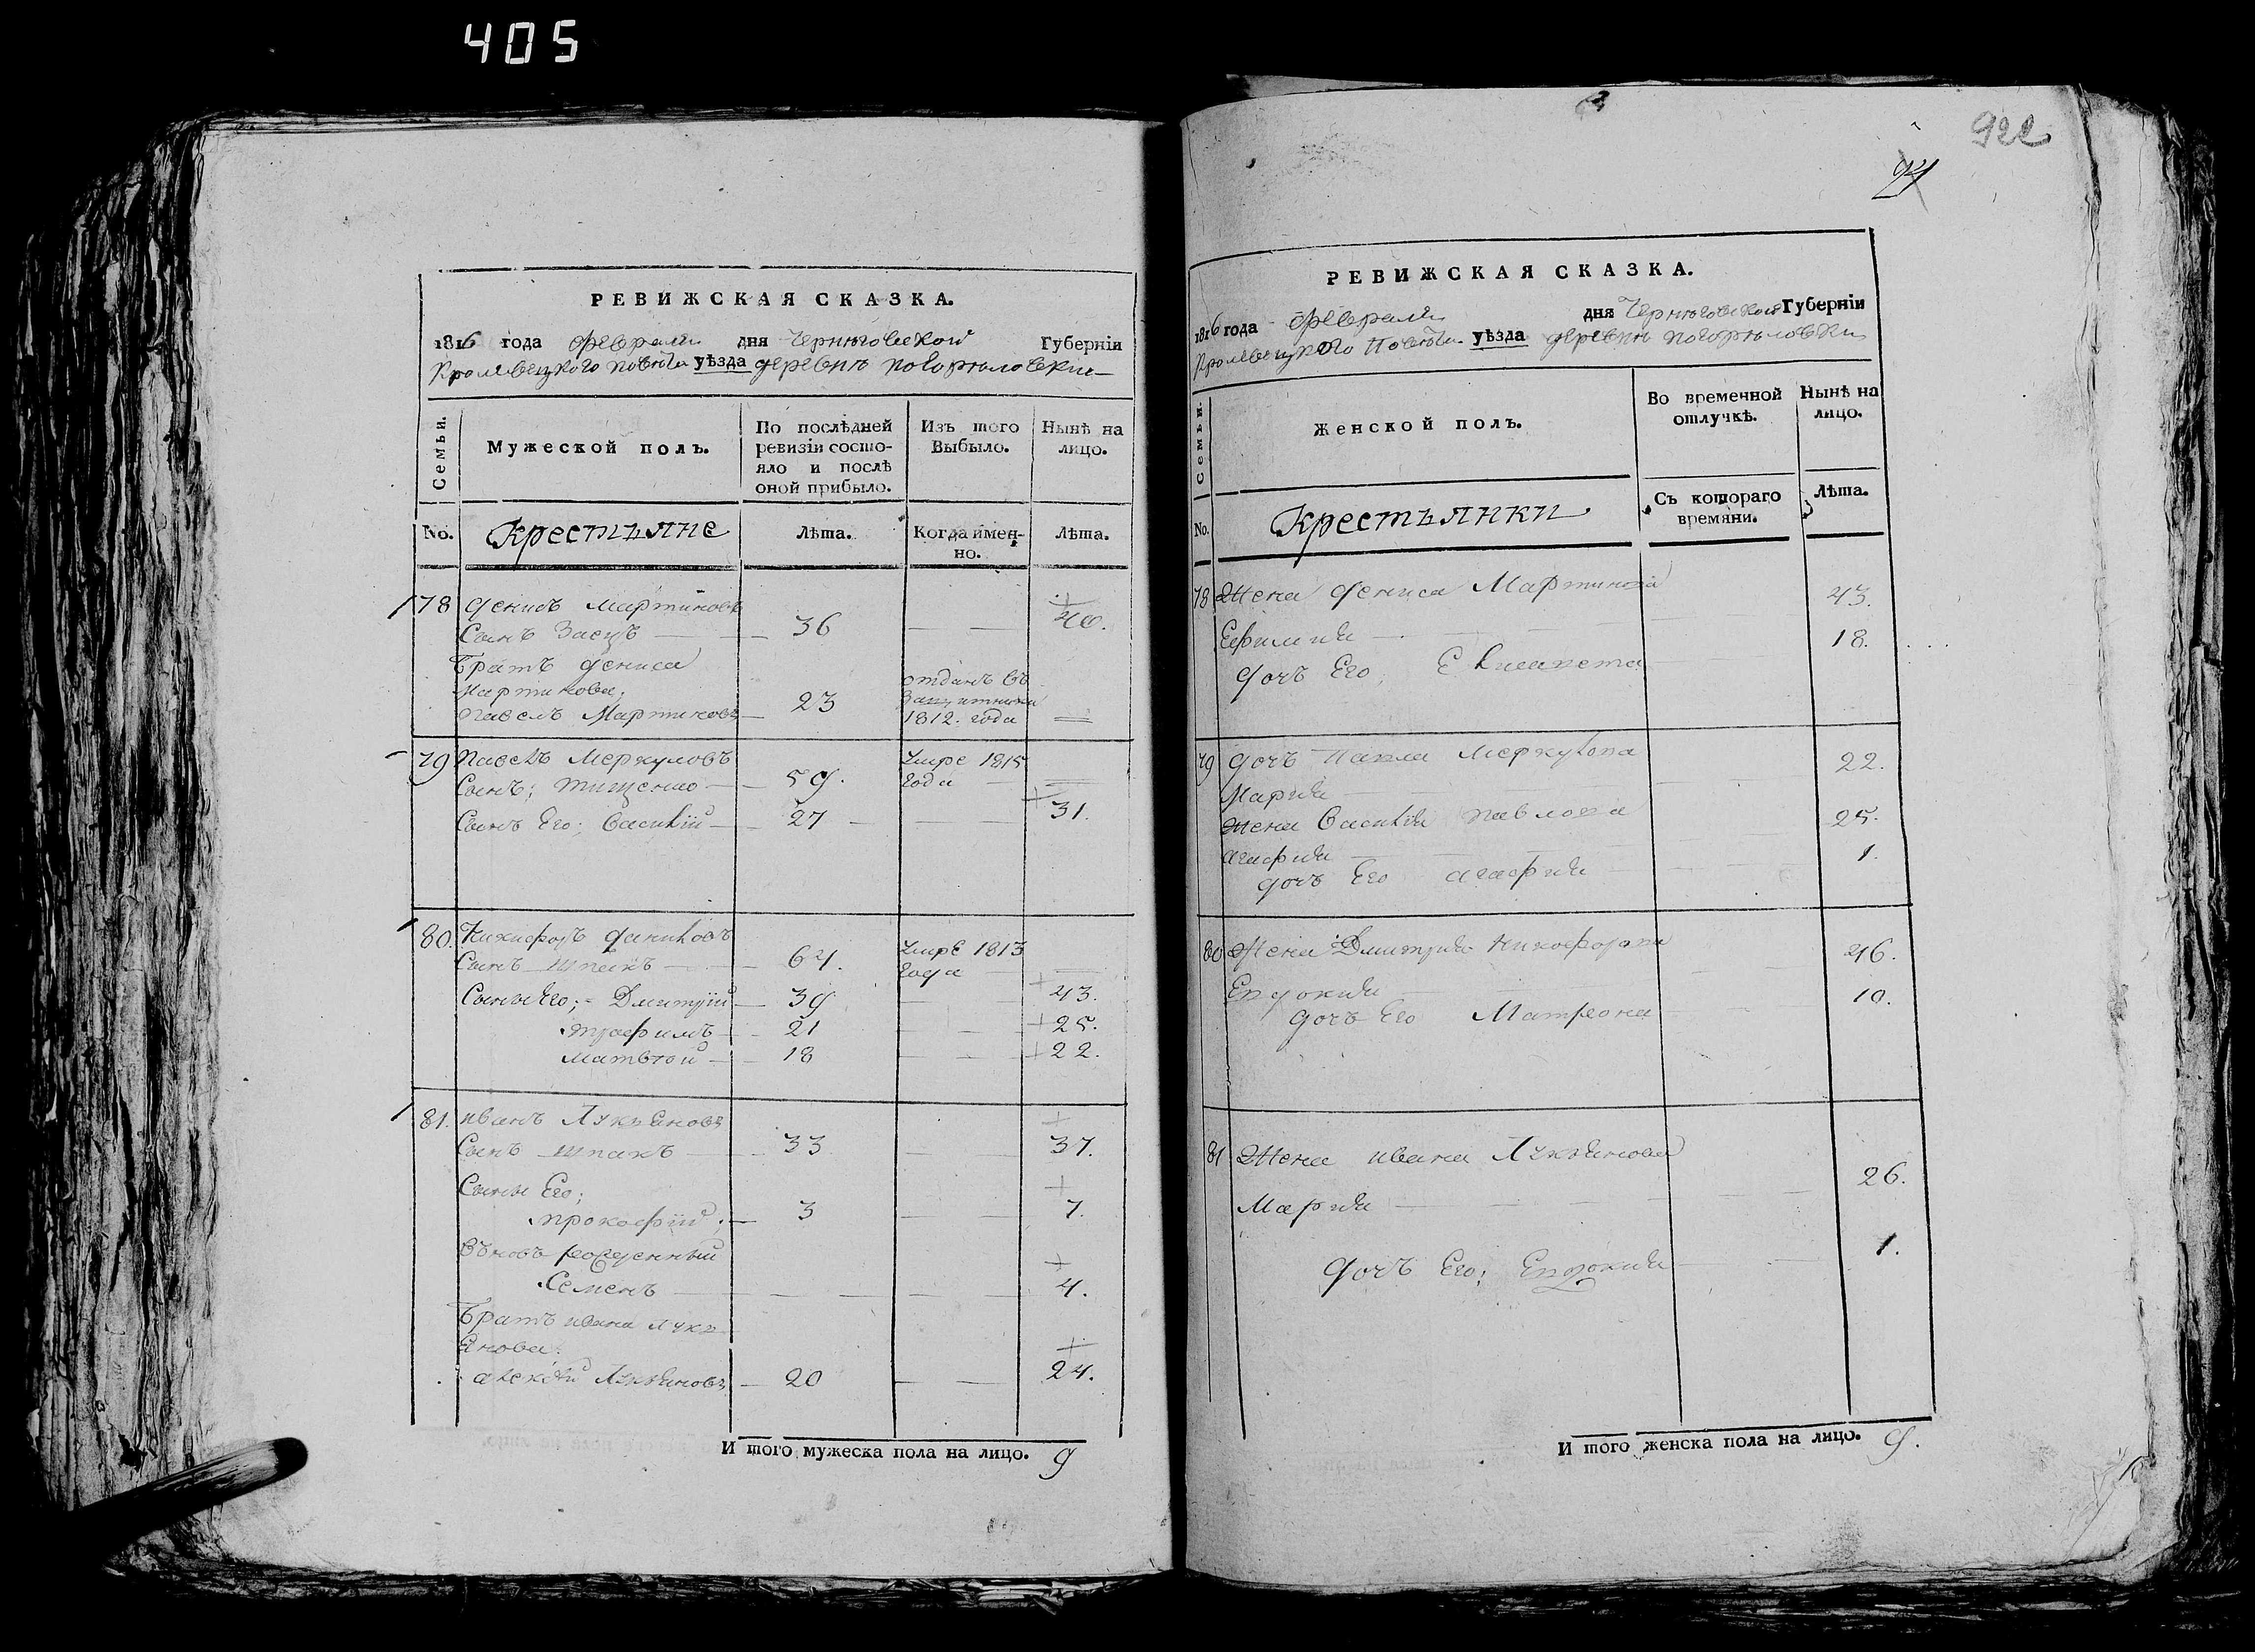 405
РЕВИЖСКАЯ СКАЗКА.
1816 года февраля дня Черниговской Губерніи
Кролевецкого повѣта уѣзда деревнѣ погорѣловки
Семьи.
Мужеской полъ.
По послѣдней ревизіи состояло и послѣ оной прибыло.
Изъ того Выбыло.
Нынѣ на лицо.
No. Крестьяне Лѣта. Когда именно. Лѣта.
78 Денисъ Мартиновъ
Сынъ Заецъ 36 40.
Братъ Дениса
Мартинова, отданъ въ
Павелъ Мартиновъ 23 защитники
1812. года
79 Павелъ Меркуловъ Умре 1815
Сынъ; Тищенко 59. года
Сынъ Его; Василій 27 31.
80. Никифоръ Даниловъ Умре 1813
Сынъ Шпакъ 64. года
Сыны Его; Дмитрій 39 43.
Трофимъ 21 25.
Матвѣй 18 22.
81. иванъ Лукьяновъ
Сынъ Шпакъ 33 37.
Сыны Его;
прокофій 3 7.
Вновь рожденный
Семенъ 4.
Братъ ивана Лукь
Янова.
алексѣй Лукьяновъ 20 24.
И того мужеска пола на лицо. 9
922
РЕВИЖСКАЯ СКАЗКА.
1816 года февраля дня Черниговской Губерніи
Кролевецкого Повѣта уѣзда деревнѣ погорѣловки
Семьи.
Женской полъ.
Во временной отлучкѣ.
Нынѣ на лицо.
No. Крестьянки Съ котораго времяни. Лѣта.
78 Жена Дениса Мартинова 43.
Ефимия
дочъ Его, Елисавета 18.
79 дочъ Павла Меркулова 22.
Мария
жена Василия павлова 25.
агафия
дочъ Его агафия 1.
80 Жена Дмитрия Никифорова 46.
Евдокия
дочъ Его Матрона 10.
81 Жена ивана Лукьянова
Мария 26.
дочъ Его; Евдокия 1.
И того женска пола на лицо. 9.